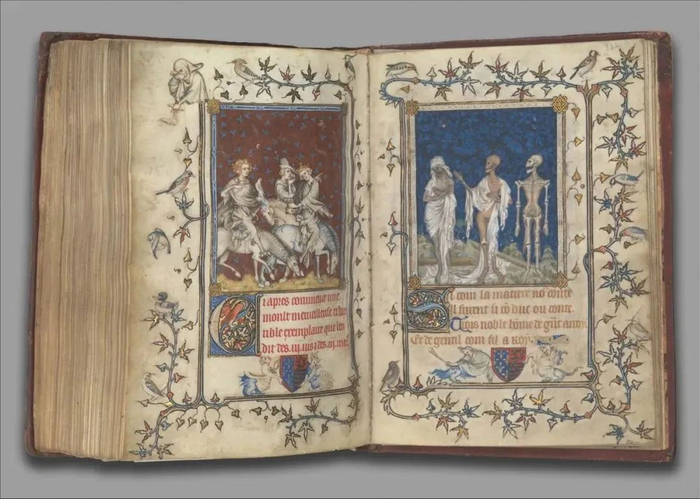 Ci apres commence une
moult merveilleuse et ho
nble exemplaire que len
dit des .iij. vis et des .iij. mors
Si com la matiere nos conte
Il furent si com duc ou conte
Trois noble home de grant arroy
Et de gentil com fil a roy